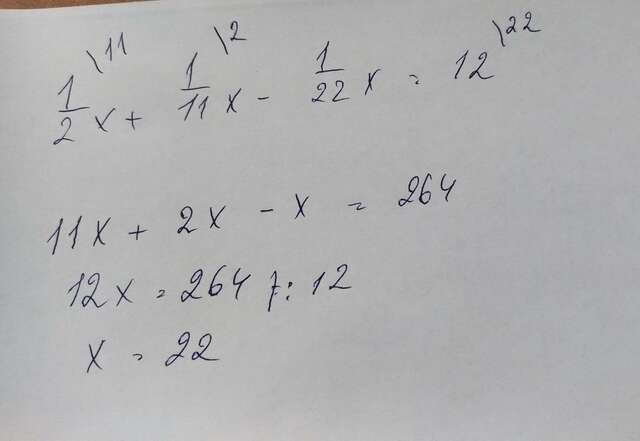 \11 \2 \22
1/2 x + 1/11 x - 1/22 x = 12
11x + 2x - x = 264
12x = 264 }: 12
x = 22